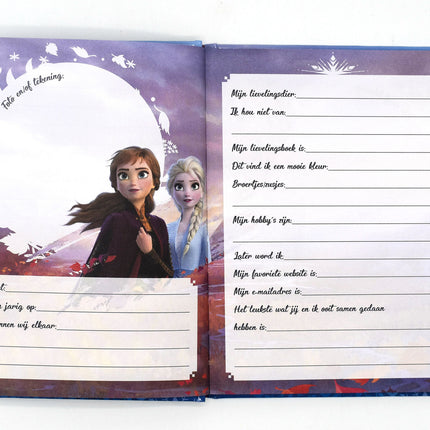 Foto en/of tekening:
t:
n jarig op:
nnen wij elkaar:
Mijn lievelingsdier:
Ik hou niet van:
Mijn lievelingsboek is:
Dit vind ik een mooie kleur:
Broertjes/zusjes:
Mijn hobby's zijn:
Later word ik
Mijn favoriete website is:
Mijn e-mailadres is:
Het leukste wat jij en ik ooit samen gedaan
hebben is: